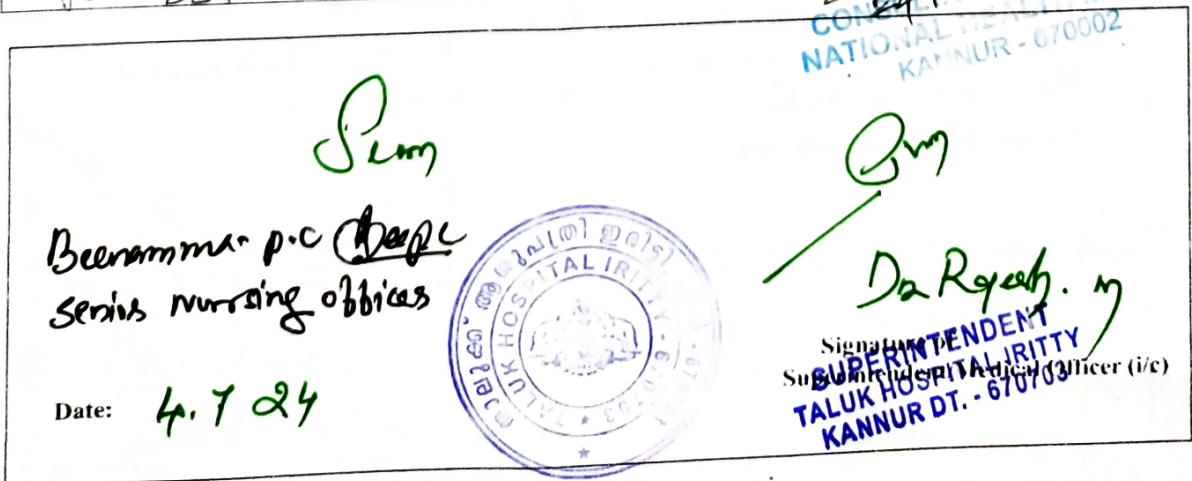 NATIONAL HEALTH
KANNUR - 670002
Beenamma. p.c
senior nursing officer
Date: 4.7 24
താലൂക്ക് ആശുപത്രി ഇരിട്ടി
TALUK HOSPITAL IRITTY - 670703
Dr Rajesh. m
Signature of
Superintendent/Medical Officer (i/c)
SUPERINTENDENT
TALUK HOSPITAL IRITTY
KANNUR DT. - 670703